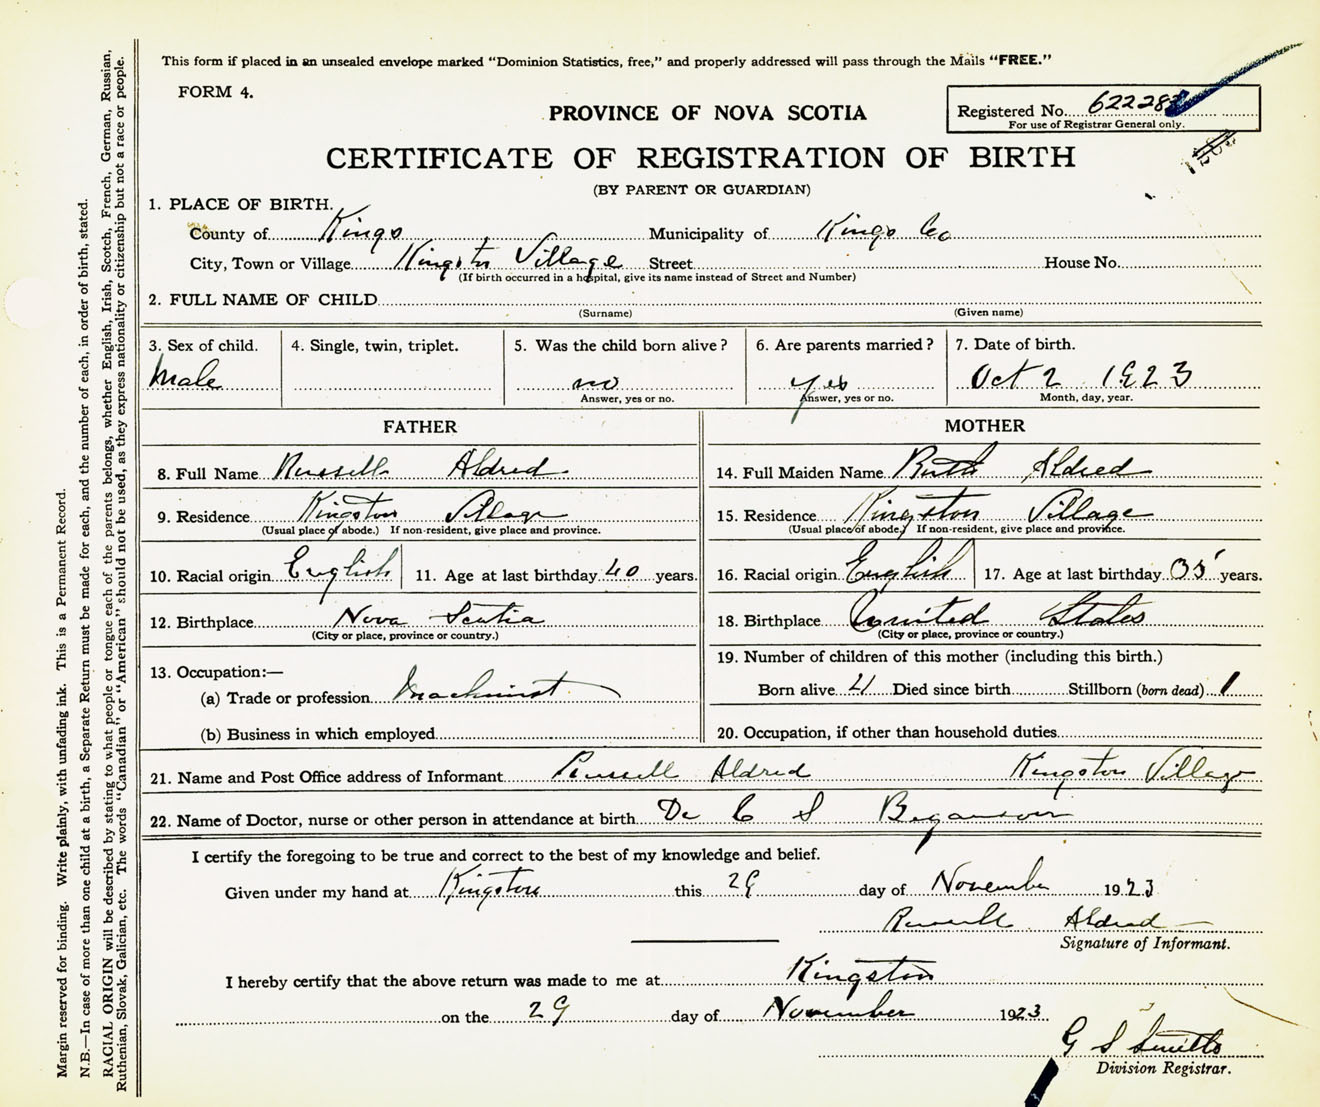 This form if placed in an unsealed envelope marked "Dominion Statistics, free," and properly addressed will pass through the Mails "FREE."
FORM 4.
PROVINCE OF NOVA SCOTIA
Registered No. 62228
For use of Registrar General only.
CERTIFICATE OF REGISTRATION OF BIRTH
(BY PARENT OR GUARDIAN)
1. PLACE OF BIRTH.
County of Kings Municipality of Kings Co
City, Town or Village Kingston Village Street House No.
(If birth occurred in a hospital, give its name instead of Street and Number)
2. FULL NAME OF CHILD
(Surname) (Given name)
3. Sex of child. 4. Single, twin, triplet. 5. Was the child born alive? 6. Are parents married? 7. Date of birth.
Male no yes Oct 2 1923
Answer, yes or no. Answer, yes or no. Month, day, year.
FATHER MOTHER
8. Full Name Russell Aldred 14. Full Maiden Name Ruth Aldred
9. Residence Kingston Village 15. Residence Kingston Village
(Usual place of abode.) If non-resident, give place and province. (Usual place of abode.) If non-resident, give place and province.
10. Racial origin English 11. Age at last birthday 40 years. 16. Racial origin English 17. Age at last birthday 35 years.
12. Birthplace Nova Scotia 18. Birthplace United States
(City or place, province or country.) (City or place, province or country.)
13. Occupation:— 19. Number of children of this mother (including this birth.)
(a) Trade or profession Machinist Born alive 4 Died since birth Stillborn (born dead) 1
(b) Business in which employed 20. Occupation, if other than household duties
21. Name and Post Office address of Informant Russell Aldred Kingston Village
22. Name of Doctor, nurse or other person in attendance at birth Dr C S
I certify the foregoing to be true and correct to the best of my knowledge and belief.
Given under my hand at Kingston this 29 day of November 1923
Russell Aldred
Signature of Informant.
I hereby certify that the above return was made to me at Kingston
on the 29 day of November 1923
G S
Division Registrar.
Margin reserved for binding. Write plainly, with unfading ink. This is a Permanent Record.
N.B.—In case of more than one child at a birth, a Separate Return must be made for each, and the number of each, in order of birth, stated.
RACIAL ORIGIN will be described by stating to what people or tongue each of the parents belongs, whether English, Irish, Scotch, French, German, Russian,
Ruthenian, Slovak, Galician, etc. The words "Canadian" or "American" should not be used, as they express nationality or citizenship but not a race or people.